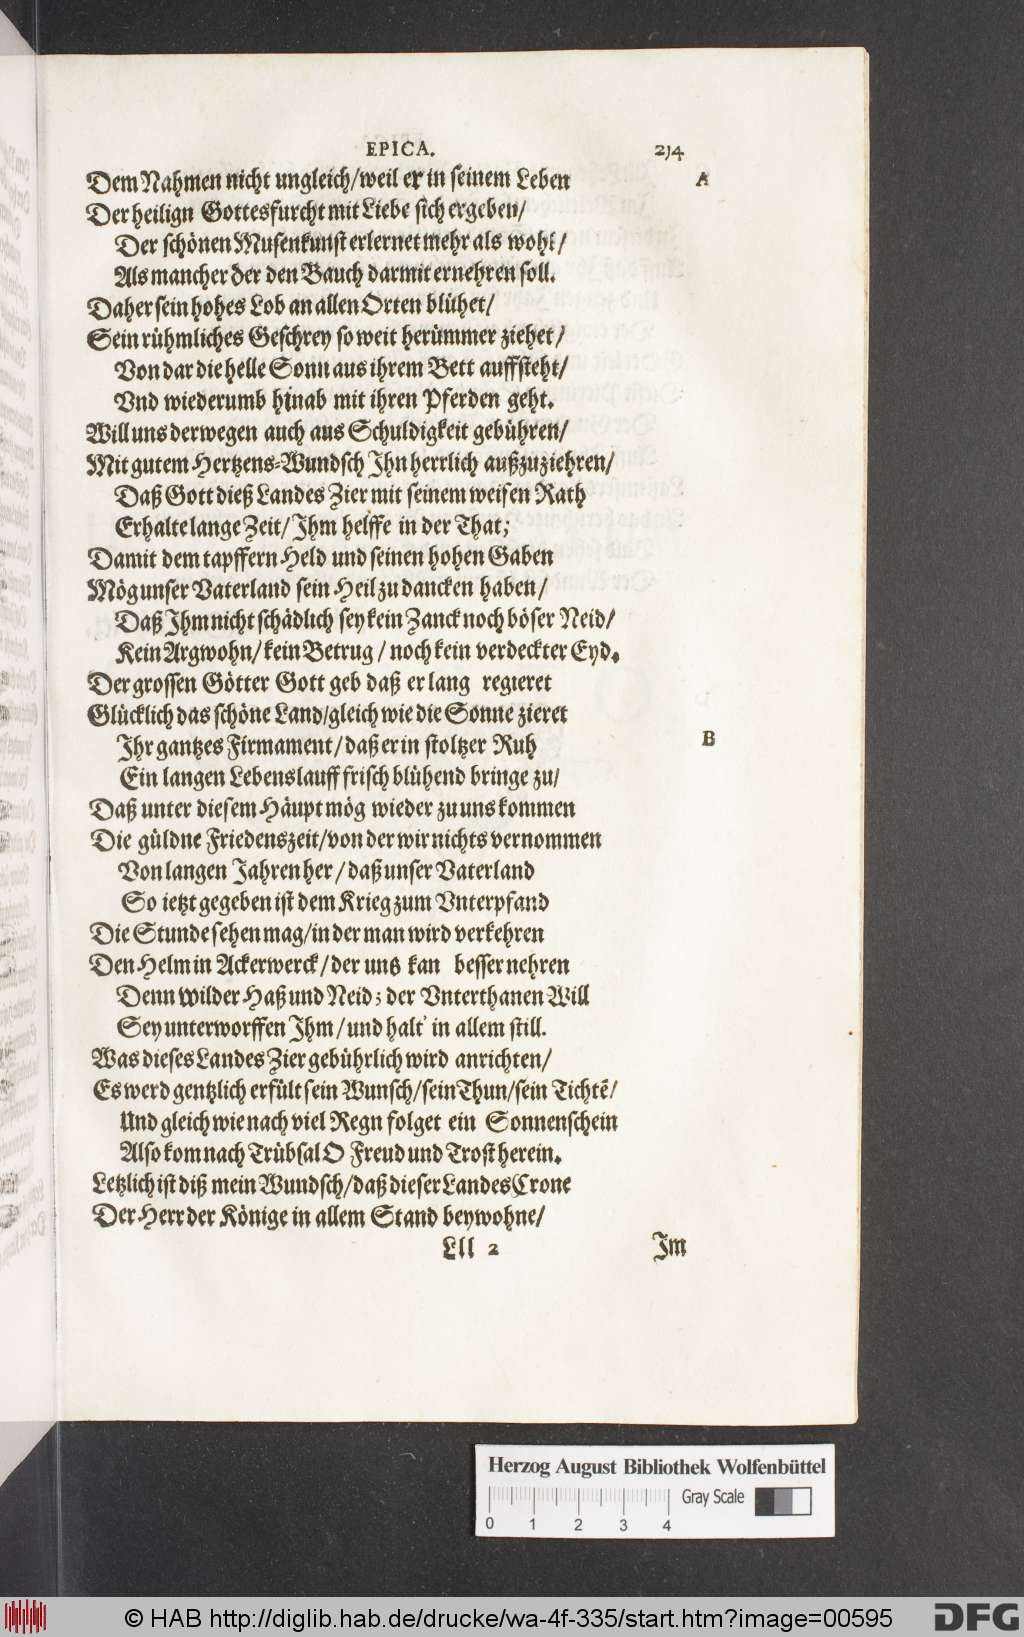 EPICA. 214
Dem Nahmen nicht ungleich/weil er in seinem Leben A
Der heilign Gottesfurcht mit Liebe sich ergeben/
Der schönen Musenkunst erlernet mehr als wohl/
Als mancher der den Bauch darmit ernehren soll.
Daher sein hohes Lob an allen Orten blühet/
Sein rühmliches Geschrey so weit herümmer ziehet/
Von dar die helle Sonn aus ihrem Bett auffsteht/
Vnd wiederumb hinab mit ihren Pferden geht.
Will uns derwegen auch aus Schuldigkeit gebühren/
Mit gutem Hertzens-Wundsch Ihn herrlich außzuziehren/
Daß Gott dieß Landes Zier mit seinem weisen Rath
Erhalte lange Zeit/ Ihm helffe in der That;
Damit dem tapffern Held und seinen hohen Gaben
Mög unser Vaterland sein Heil zu dancken haben/
Daß Ihm nicht schädlich sey kein Zanck noch böser Neid/
Kein Argwohn/ kein Betrug / noch kein verdeckter Eyd.
Der grossen Götter Gott geb daß er lang regieret
Glücklich das schöne Land/gleich wie die Sonne zieret
Ihr gantzes Firmament/ daß er in stoltzer Ruh B
Ein langen Lebenslauff frisch blühend bringe zu/
Daß unter diesem Häupt mög wieder zu uns kommen
Die güldne Friedenszeit/von der wir nichts vernommen
Von langen Jahren her / daß unser Vaterland
So ietzt gegeben ist dem Krieg zum Vnterpfand
Die Stunde sehen mag/in der man wird verkehren
Den Helm in Ackerwerck/der uns kan besser nehren
Denn wilder Haß und Neid; der Vnterthanen Will
Sey unterworffen Ihm / und halt' in allem still.
Was dieses Landes Zier gebührlich wird anrichten/
Es werd gentzlich erfült sein Wunsch/sein Thun/sein Tichtē/
Und gleich wie nach viel Regn folget ein Sonnenschein
Also kom nach Trübsal O Freud und Trost herein.
Letzlich ist diß mein Wundsch/daß dieser Landes Crone
Der Herr der Könige in allem Stand beywohne/
Lll 2 Im
Herzog August Bibliothek Wolfenbüttel
Gray Scale
0 1 2 3 4
© HAB http://diglib.hab.de/drucke/wa-4f-335/start.htm?image=00595 DFG